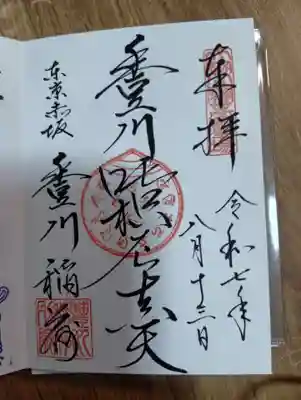 奉拝
令和七年
八月十三日
豊川吒枳尼真天
東京赤坂
豊川稲荷